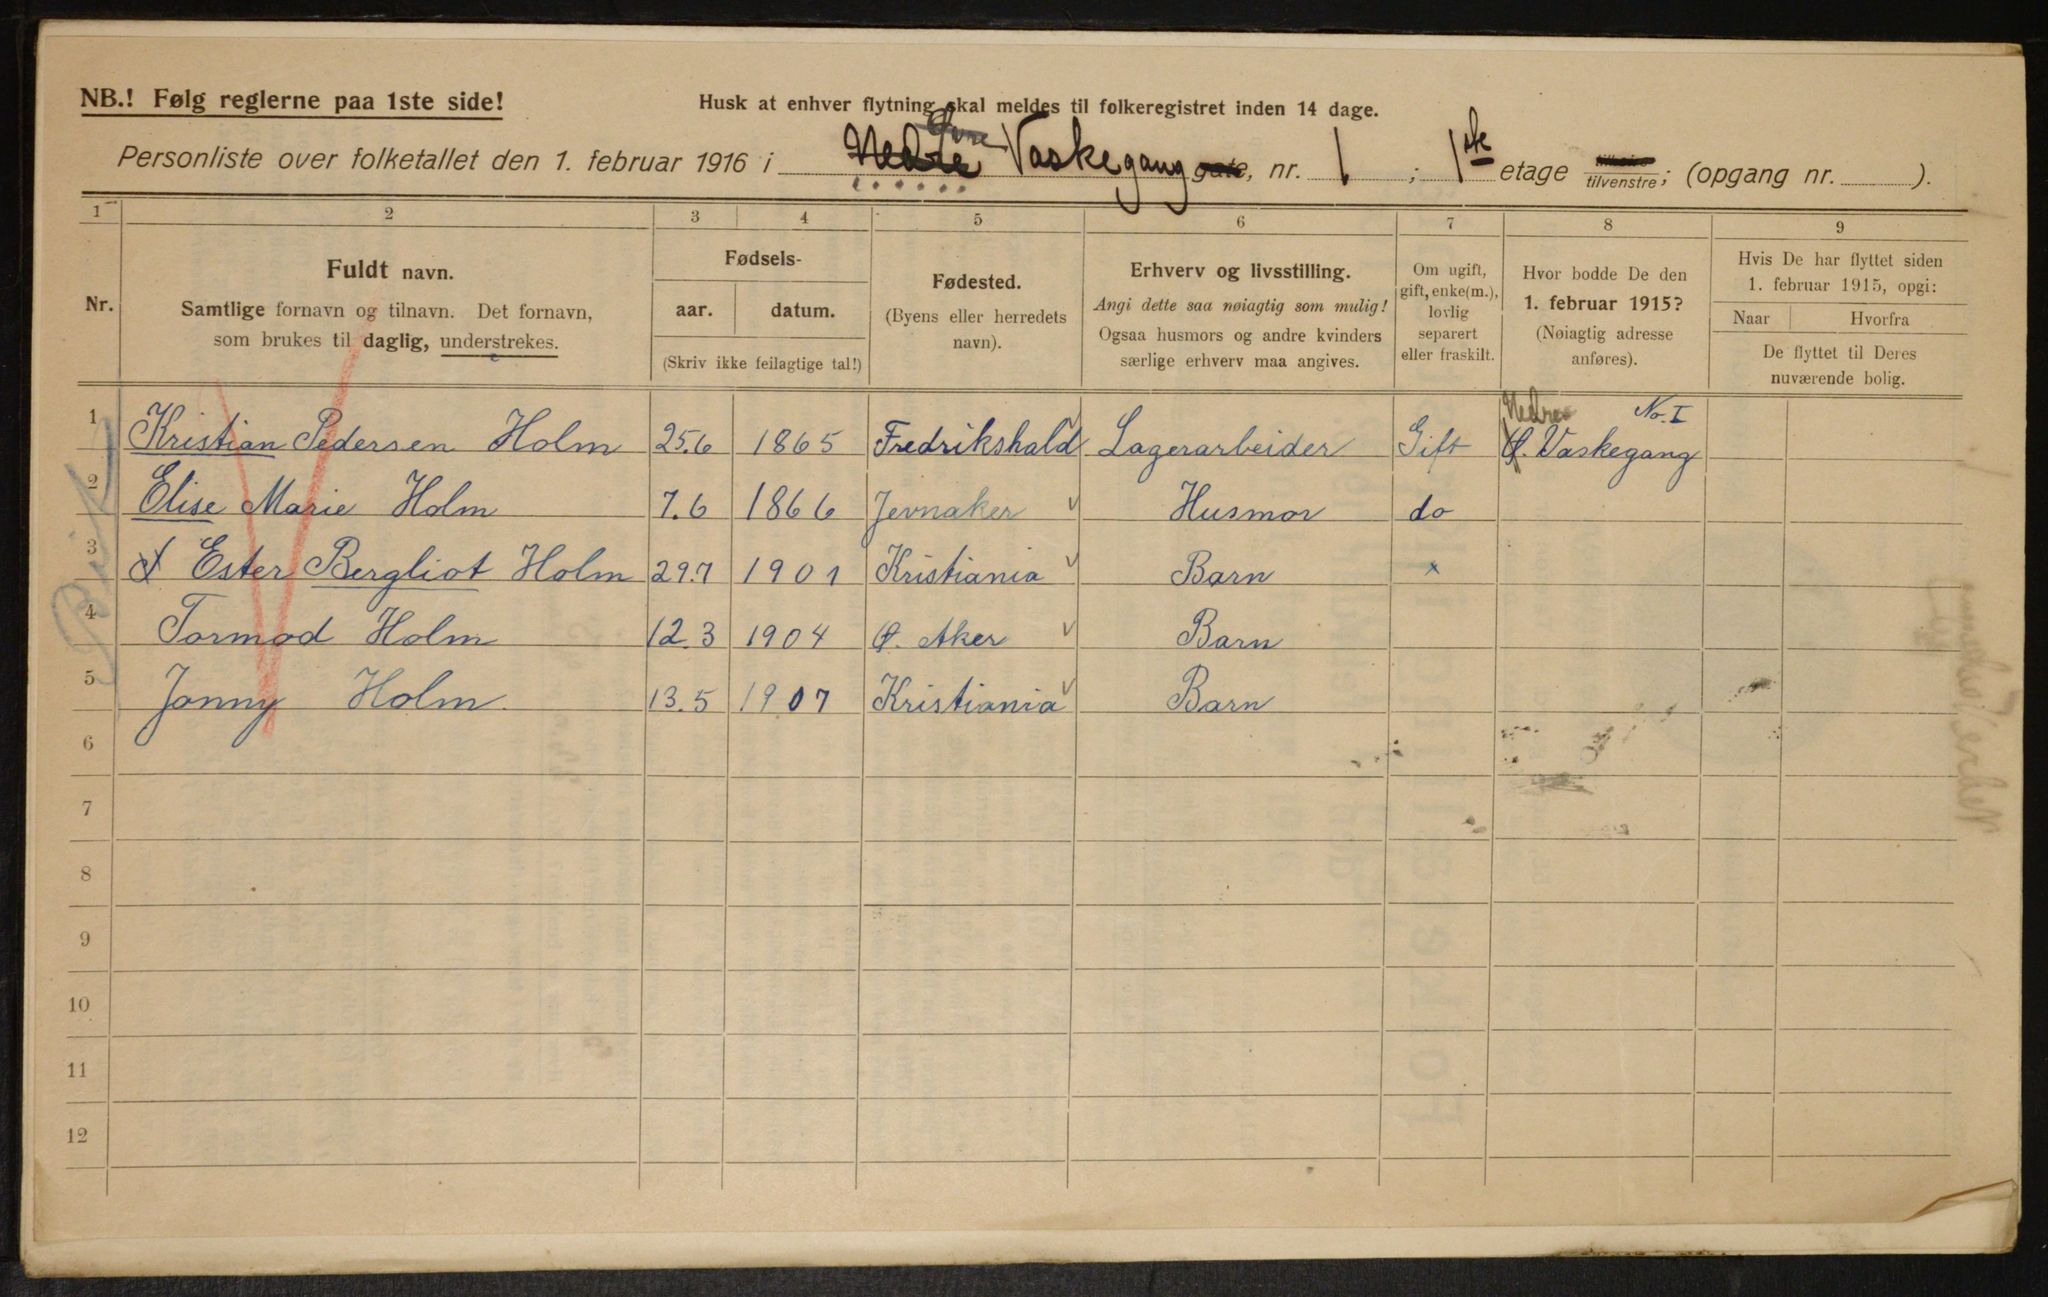 NB.! Følg reglerne paa 1ste side!
Husk at enhver flytning skal meldes til folkeregistret inden 14 dage.
Personliste over folketallet den 1. februar 1916 i Nedre Vaskegang gate, nr. 1; 1ste etage tilhøire tilvenstre; (opgang nr. ).
1 2 3 4 5 6 7 8 9
Nr.
Fuldt navn.
Samtlige fornavn og tilnavn. Det fornavn,
som brukes til daglig, understrekes.
Fødsels-
aar. datum.
(Skriv ikke feilagtige tal!)
Fødested.
(Byens eller herredets
navn).
Erhverv og livsstilling.
Angi dette saa nøiagtig som mulig!
Ogsaa husmors og andre kvinders
særlige erhverv maa angives.
Om ugift,
gift, enke(m.),
lovlig
separert
eller fraskilt.
Hvor bodde De den
1. februar 1915?
(Nøiagtig adresse
anføres).
Hvis De har flyttet siden
1. februar 1915, opgi:
Naar Hvorfra
De flyttet til Deres
nuværende bolig.
Nedre No. I
1 Kristian Pedersen Holm 25.6 1865 Fredrikshald Lagerarbeider Gift Ø. Vaskegang
2 Elise Marie Holm 7.6 1866 Jevnaker Husmor do
3 Ester Bergliot Holm 29.7 1901 Kristiania Barn x
4 Tormod Holm 12.3 1904 Ø. Aker Barn
5 Jonny Holm 13.5 1907 Kristiania Barn
6
7
8
9
10
11
12